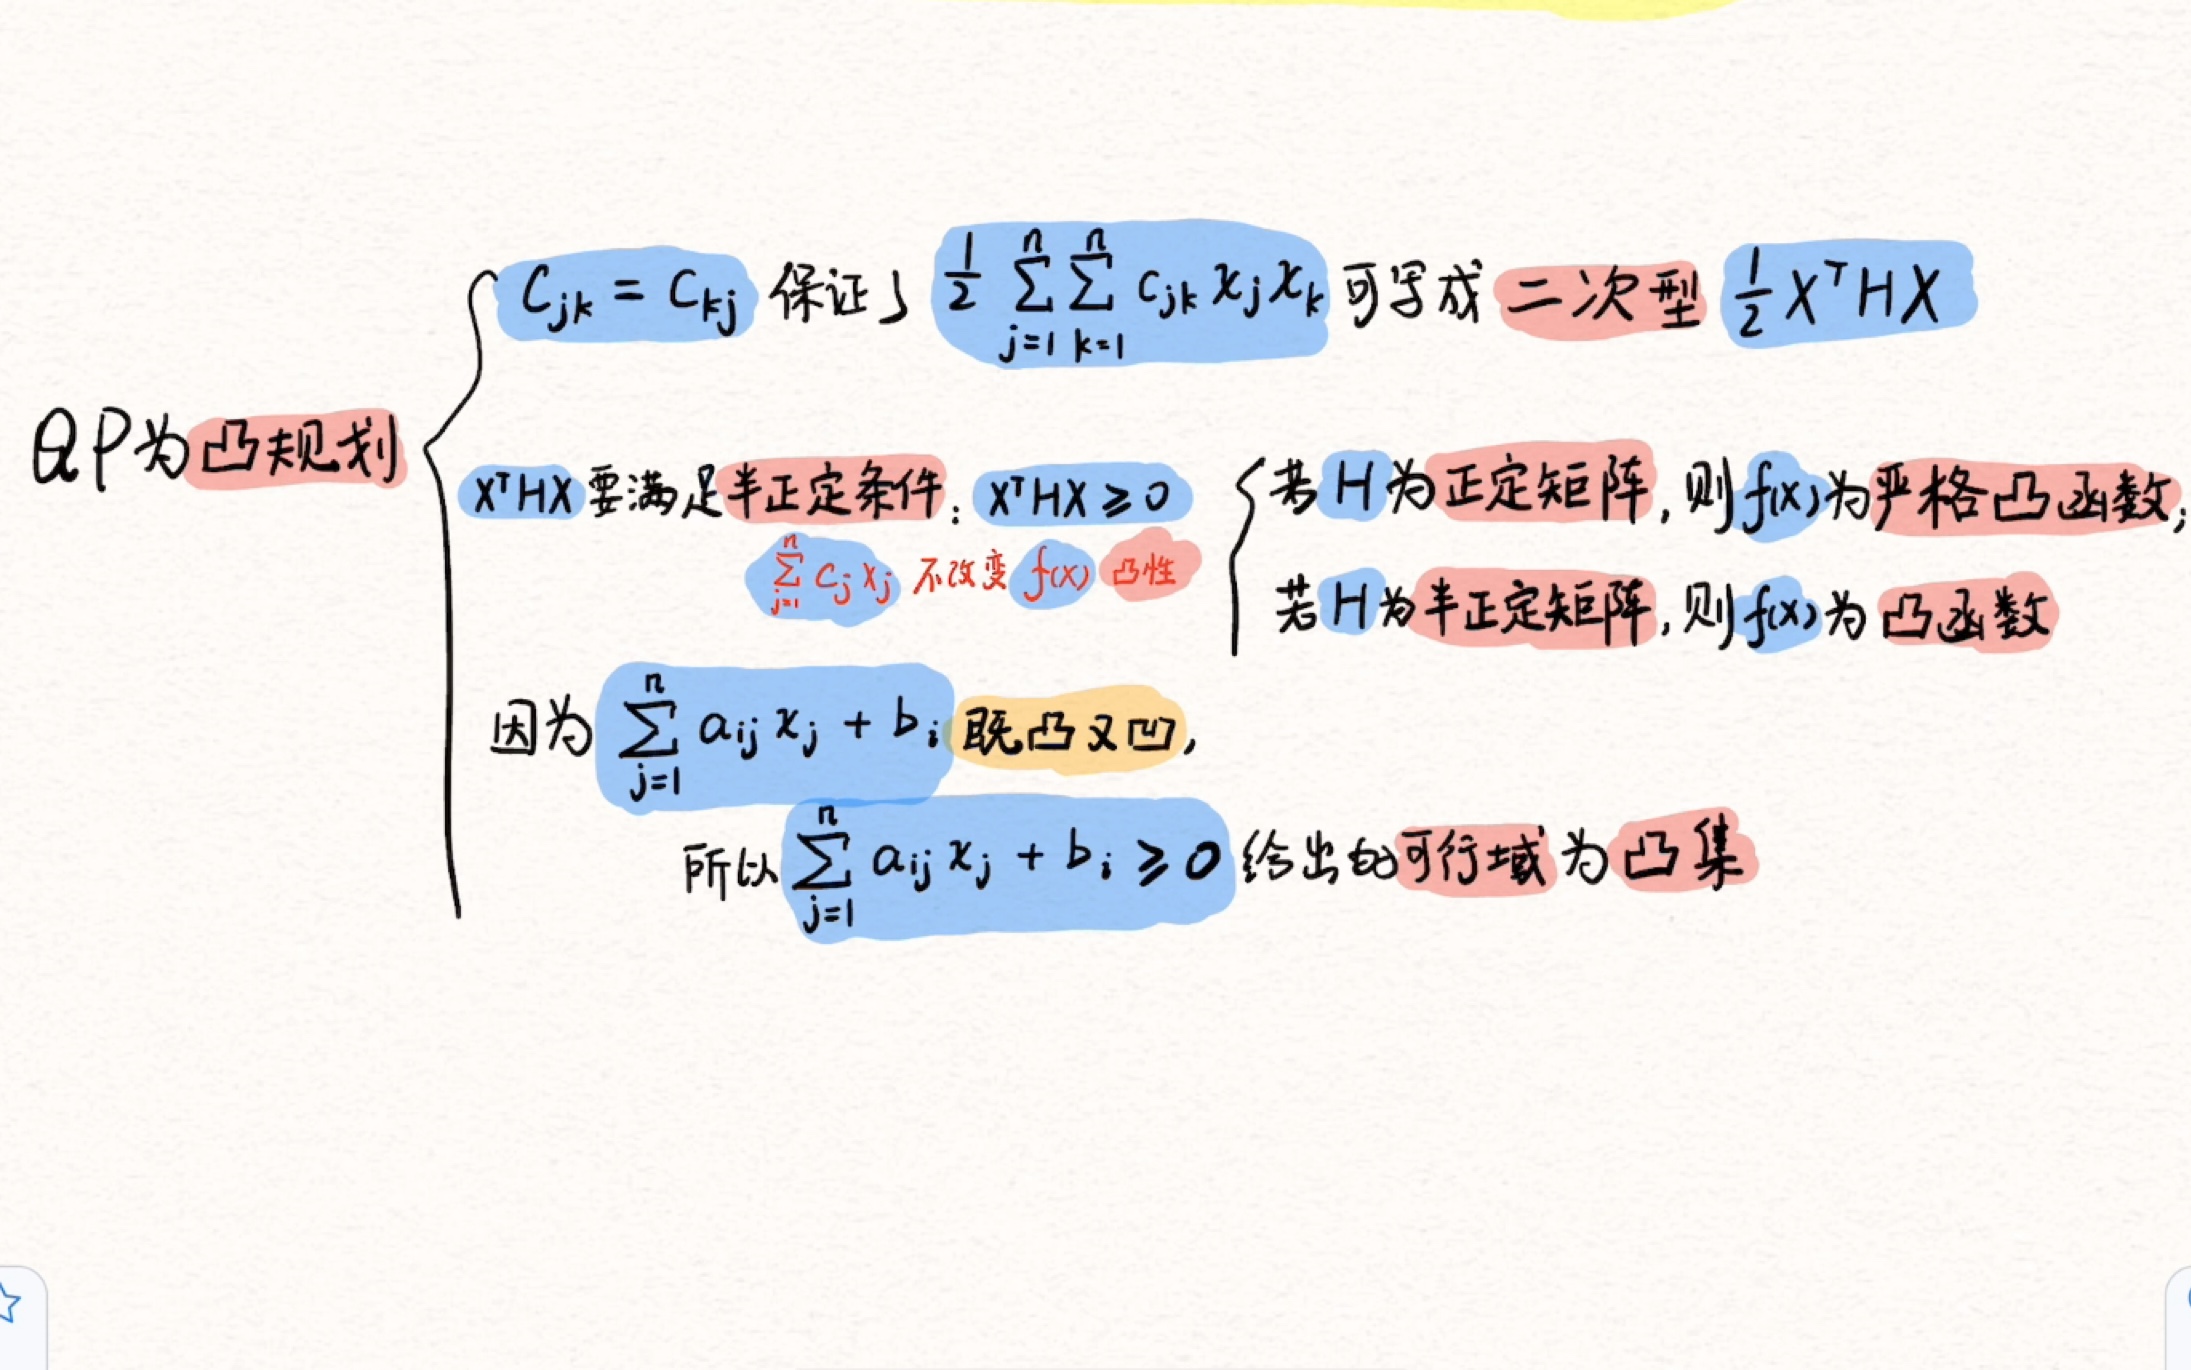 C_{jk} = C_{kj} 保证了 \frac{1}{2} \sum_{j=1}^{n} \sum_{k=1}^{n} c_{jk} x_j x_k 可写成 二次型 \frac{1}{2} X^T H X
QP为凸规划
X^T H X 要满足半正定条件: X^T H X ≥ 0
\sum_{j=1}^{n} c_j x_j 不改变 f(x) 凸性
若 H 为正定矩阵, 则 f(x) 为严格凸函数;
若 H 为半正定矩阵, 则 f(x) 为 凸函数
因为 \sum_{j=1}^{n} a_{ij} x_j + b_i 既凸又凹,
所以 \sum_{j=1}^{n} a_{ij} x_j + b_i ≥ 0 给出的可行域为凸集